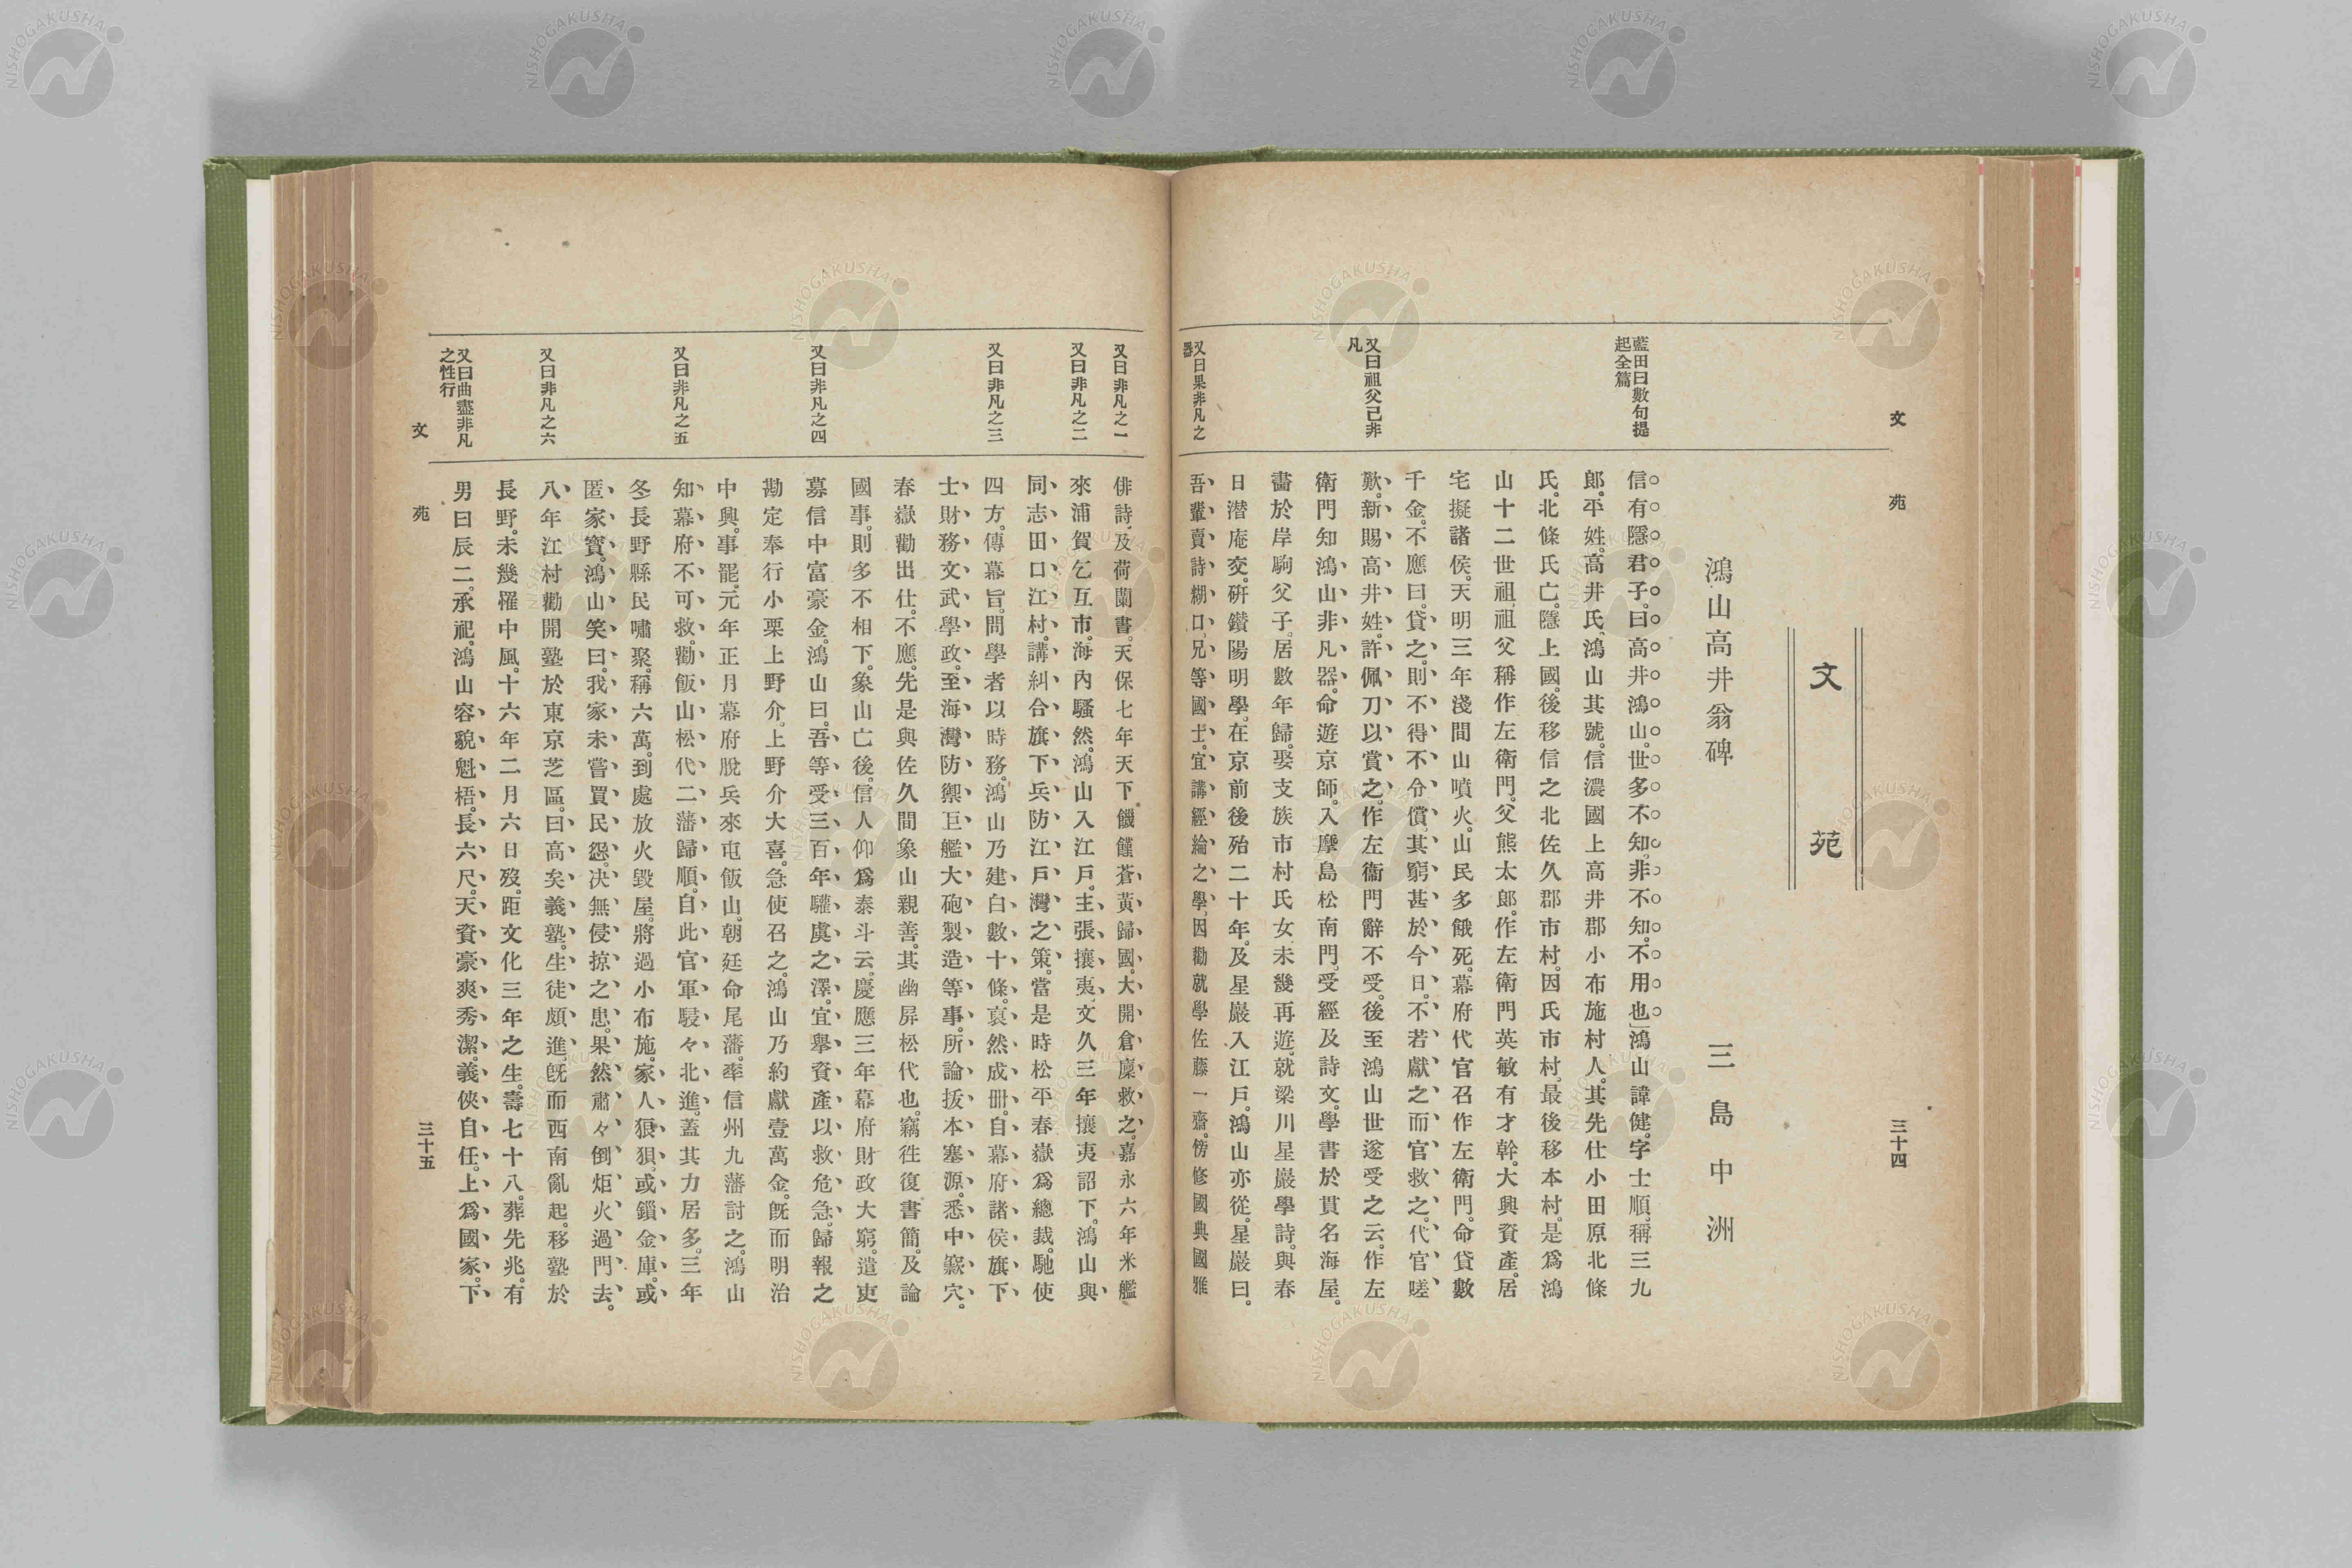 文苑
三十四
文苑
鴻山高井翁碑
三島中洲
藍田曰數句提
起全篇
又曰祖父已非
凡
又曰果非凡之
器
信有隱君子。曰高井鴻山。世多不知。非不知。不用也」鴻山諱健。字士順。稱三九
郎。平姓。高井氏。鴻山其號。信濃國上高井郡小布施村人。其先仕小田原北條
氏。北條氏亡。隱上國。後移信之北佐久郡市村。因氏市村。最後移本村。是爲鴻
山十二世祖。祖父稱作左衛門。父熊太郎。作左衛門英敏有才幹。大興資產。居
宅擬諸侯。天明三年淺間山噴火。山民多餓死。幕府代官召作左衛門。命貸數
千金。不應曰。貸之。則不得不令償。其窮甚於今日。不若獻之而官救之。代官嗟
歎。新賜高井姓。許佩刀以賞之。作左衞門辭不受。後至鴻山世遂受之云。作左
衛門知鴻山非凡器。命遊京師。入摩島松南門。受經及詩文。學書於貫名海屋。
畫於岸駒父子。居數年歸。娶支族市村氏女。未幾再遊。就梁川星巖學詩。與春
日潜庵交。研鑽陽明學。在京前後殆二十年。及星巖入江戶。鴻山亦從。星巖曰。
吾輩賣詩糊口。兄等國士。宜講經綸之學。因勸就學佐藤一齋。傍修國典國雅
又曰非凡之一
又曰非凡之二
又曰非凡之三
又曰非凡之四
又曰非凡之五
又曰非凡之六
又曰曲盡非凡
之性行
俳詩。及荷蘭書。天保七年天下饑饉。蒼黃歸國。大開倉廩救之。嘉永六年米艦
來浦賀乞互市。海內騷然。鴻山入江戶。主張攘夷。文久三年攘夷詔下。鴻山與
同志田口江村。講糾合旗下兵防江戶灣之策。當是時松平春嶽爲總裁。馳使
四方。傳幕旨。問學者以時務。鴻山乃建白數十條。裒然成冊。自幕府諸侯旗下
士財務文武學政。至海灣防禦巨艦大砲製造等事。所論拔本塞源。悉中窾穴。
春嶽勸出仕。不應。先是與佐久間象山親善。其幽屏松代也。竊徃復書簡。及論
國事。則多不相下。象山亡後。信人仰爲泰斗云。慶應三年幕府財政大窮。遣吏
募信中富豪金。鴻山曰。吾等受三百年驩虞之澤。宜舉資產以救危急。歸報之
勘定奉行小栗上野介。上野介大喜。急使召之。鴻山乃約獻壹萬金。既而明治
中興。事罷。元年正月幕府脫兵來屯飯山。朝廷命尾藩。率信州九藩討之。鴻山
知幕府不可救。勸飯山松代二藩歸順。自此官軍駸々北進。蓋其力居多。三年
冬長野縣民嘯聚。稱六萬。到處放火毀屋。將過小布施。家人狼狽。或鎖金庫。或
匿家寶。鴻山笑曰。我家未嘗買民怨。决無侵掠之患。果然肅々倒炬火過門去。
八年江村勸開塾於東京芝區。曰高矣義塾。生徒頗進。既而西南亂起。移塾於
長野。未幾罹中風。十六年二月六日歿。距文化三年之生。壽七十八。葬先兆。有
男曰辰二。承祀。鴻山容貌魁梧。長六尺。天資豪爽秀潔。義俠自任。上爲國家。下
文苑
三十五